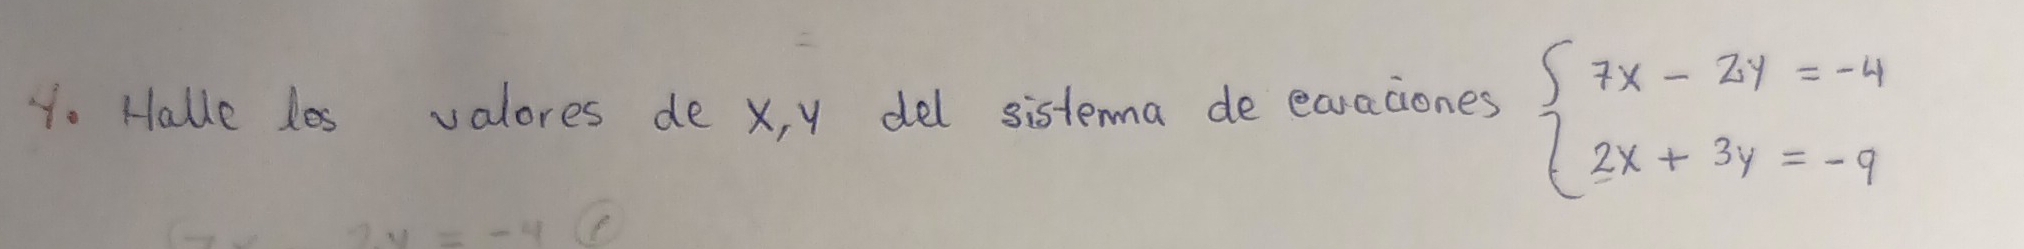 4. Halle los valores de x, y del sistema de ecuaciones { 7x - 2y = -4
2x + 3y = -9
7x 2y = -4